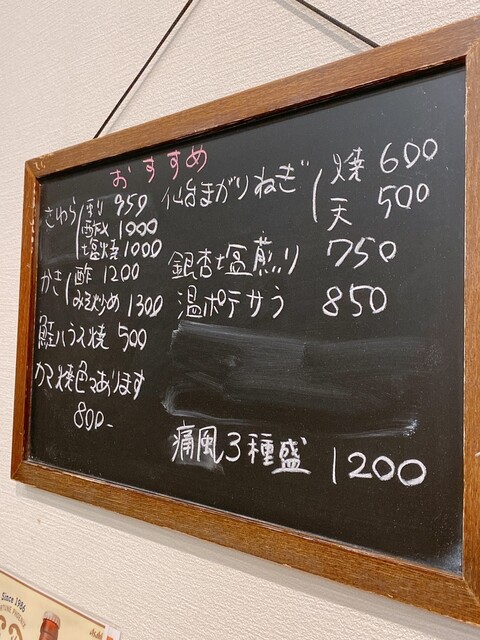 おすすめ
さわら 刺り 950
酢〆 1000
塩焼 1000
かき 酢 1200
みそ炒め 1300
鮭ハラス焼 500
カマ焼色々あります
800-
仙台まがりねぎ 焼 600
天 500
銀杏塩煎り 750
温ポテサラ 850
痛風3種盛 1200
Since 1986